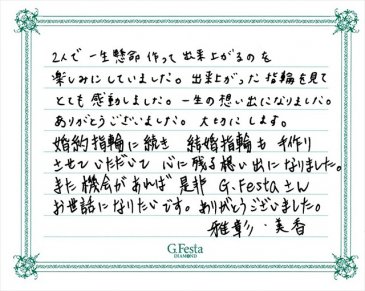 2人で一生懸命作って出来上がるのを
楽しみにしていました。出来上がった指輪を見て
とても感動しました。一生の想い出になりました。
ありがとうございました。大切にします。
婚約指輪に続き 結婚指輪も手作り
させていただいて 心に残る想い出になりました。
また機会があれば是非 G.Festaさん
お世話になりたいです。ありがとうございました。
雅彰・美香
G.Festa
DIAMOND